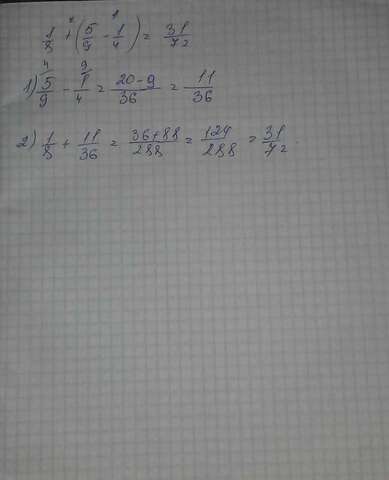 1/8 + (5/9 - 1/4) = 31/72
1) 5/9 - 1/4 = 20-9/36 = 11/36
2) 1/8 + 11/36 = 36+88/288 = 124/288 = 31/72